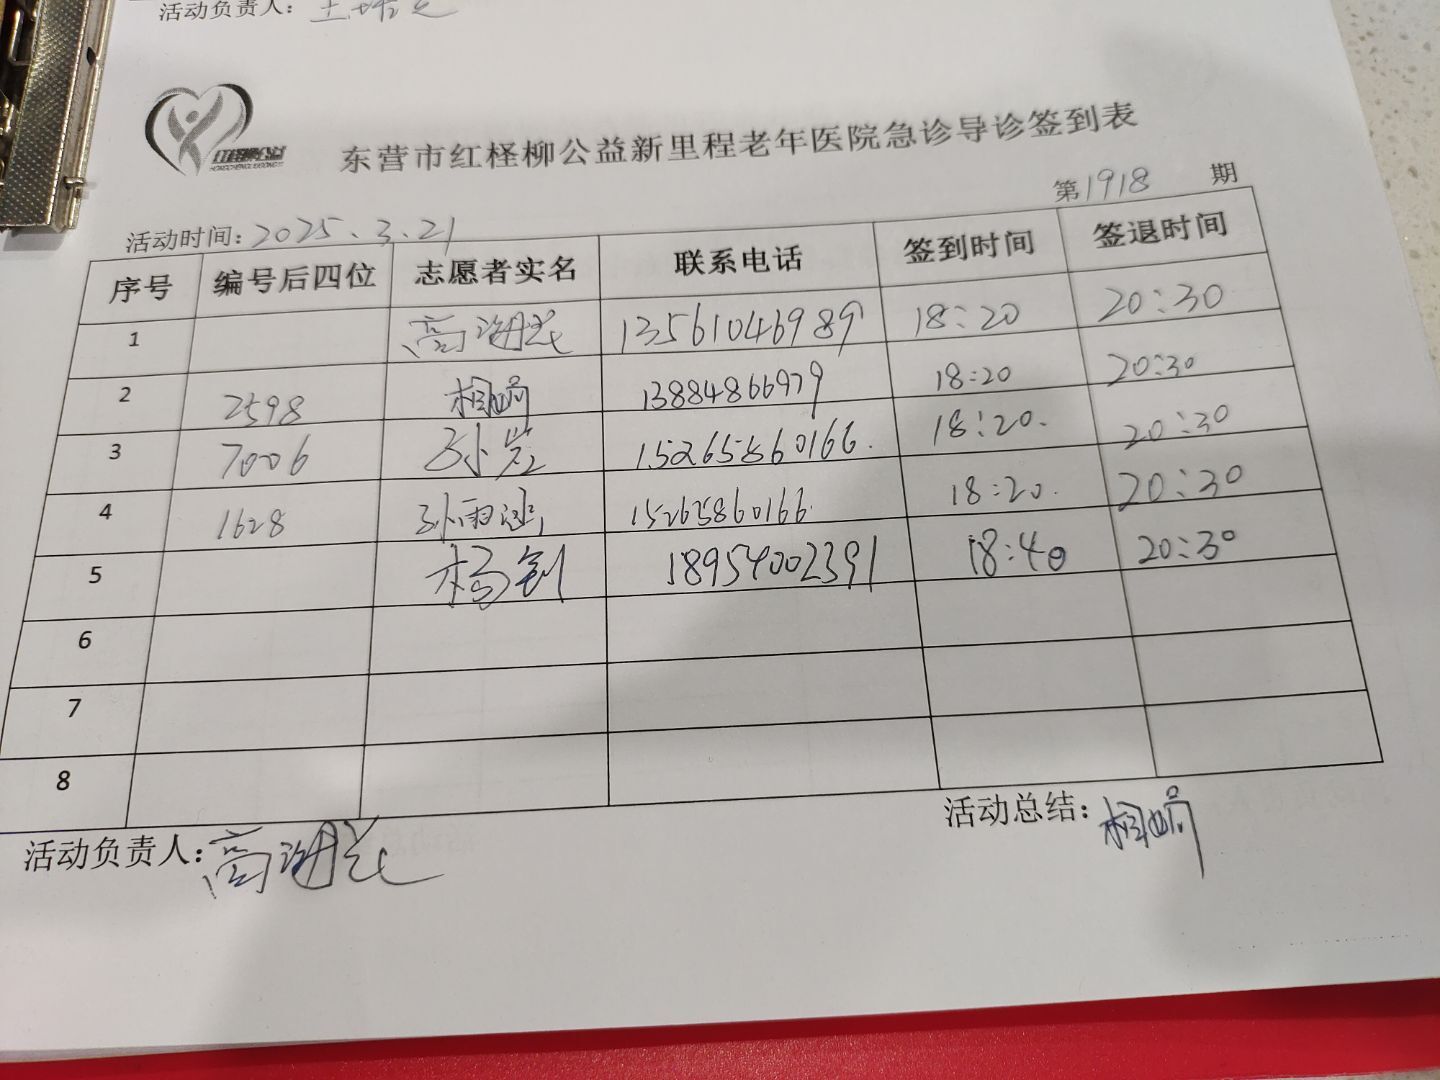 活动负责人：
东营市红柽柳公益新里程老年医院急诊导诊签到表
第1918期
活动时间：2025.3.21
序号 编号后四位 志愿者实名 联系电话 签到时间 签退时间
1 高 13561046989 18:20 20:30
2 2598 相 13884866979 18:20 20:30
3 7006 孙岩 15265860166. 18:20. 20:30
4 1628 孙雨涵 15265860166. 18:20. 20:30
5 杨钊 18954002391 18:40 20:30
6
7
8
活动负责人：高
活动总结：相